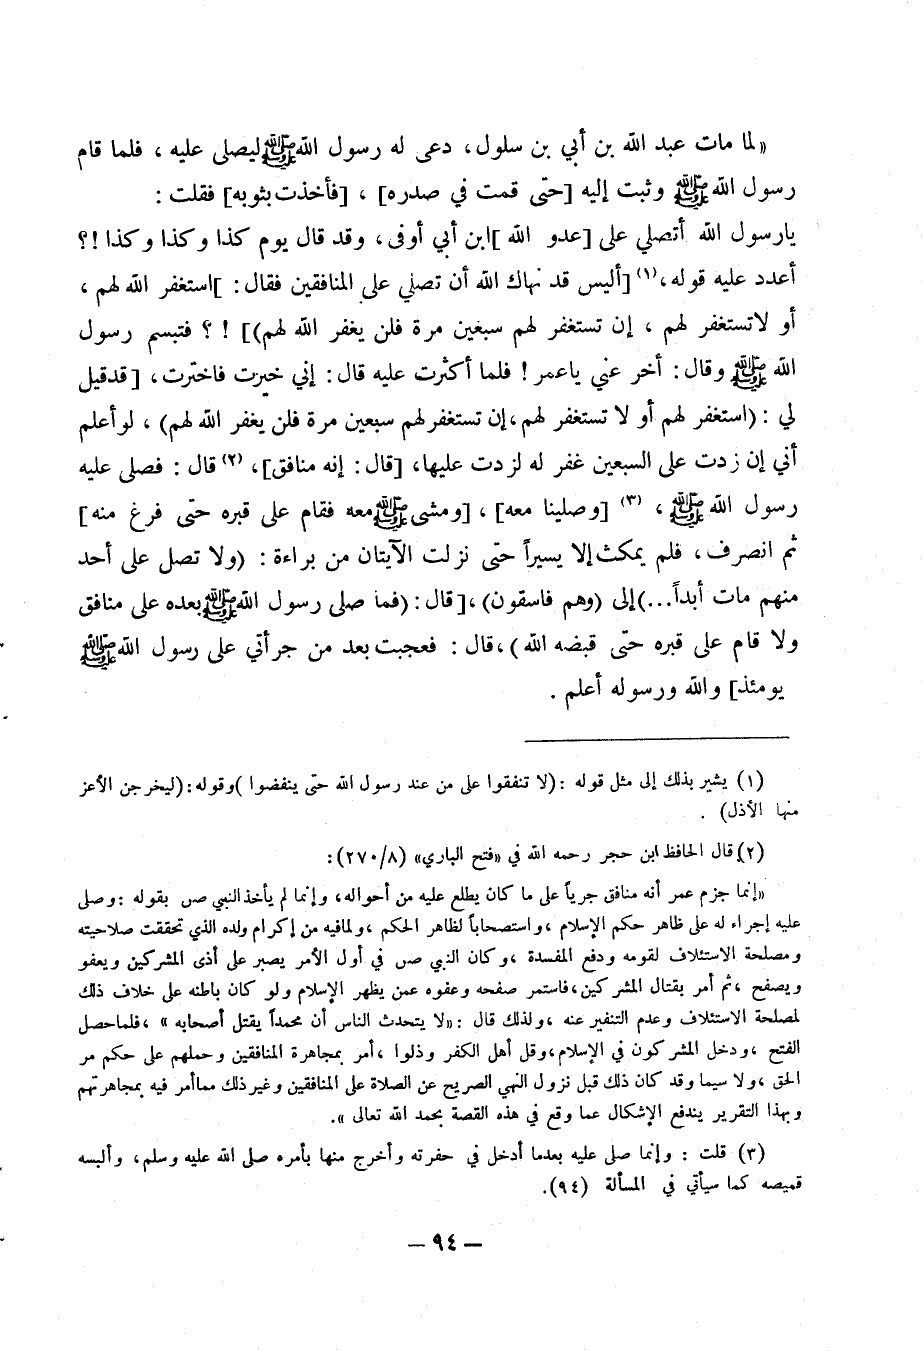 «لما مات عبد الله بن أبي بن سلول، دعى له رسول الله ﷺ ليصلى عليه ، فلما قام
رسول الله ﷺ وثبت إليه [حتى قمت في صدره] ، [فأخذت بثوبه] فقلت :
يارسول الله أتصلي على [عدو الله ]ابن أبي أوفى، وقد قال يوم كذا وكذا وكذا !؟
أعدد عليه قوله،(١) [أليس قد نهاك الله أن تصلي على المنافقين فقال : ]استغفر الله لهم ،
أو لاتستغفر لهم ، إن تستغفر لهم سبعين مرة فلن يغفر الله لهم)] ! ؟ فتبسم رسول
الله ﷺ وقال : أخر عني ياعمر ! فلما أكثرت عليه قال : إني خيرت فاخترت ، [قدقيل
لي : (استغفر لهم أو لا تستغفر لهم ،إن تستغفرلهم سبعين مرة فلن يغفر الله لهم) ، لوأعلم
أني إن زدت على السبعين غفر له لزدت عليها، [قال : إنه منافق]، (٢) قال : فصلى عليه
رسول الله ﷺ ، (٣) [وصلينا معه] ، [ومشى ﷺ معه فقام على قبره حتى فرغ منه]
ثم انصرف ، فلم يمكث إلا يسيراً حتى نزلت الآيتان من براءة : (ولا تصل على أحد
منهم مات أبداً...)إلى (وهم فاسقون) ،[قال : (فما صلى رسول الله ﷺ بعده على منافق
ولا قام على قبره حتى قبضه الله ) ،قال : فعجبت بعد من جرأتي على رسول الله ﷺ
يومئذ] والله ورسوله أعلم .
(١) يشير بذلك إلى مثل قوله : (لا تنفقوا على من عند رسول الله حتى ينفضوا )وقوله : (ليخرجن الأعز
منها الأذل) .
(٢) قال الحافظ ابن حجر رحمه الله في «فتح الباري» (٢٧٠/٨):
«إنما جزم عمر أنه منافق جرياً على ما كان يطلع عليه من أحواله، وإنما لم يأخذ النبي ص بقوله :وصلى
عليه إجراء له على ظاهر حكم الإسلام ،واستصحاباً لظاهر الحكم ،ولمافيه من إكرام ولده الذي تحققت صلاحيته
ومصلحة الاستئلاف لقومه ودفع المفسدة ،وكان النبي ص في أول الأمر يصبر على أذى المشركين ويعفو
ويصفح ،ثم أمر بقتال المشركين ،فاستمر صفحه وعفوه عمن يظهر الإسلام ولو كان باطنه على خلاف ذلك
لمصلحة الاستئلاف وعدم التنفير عنه ،ولذلك قال :«لا يتحدث الناس أن محمداً يقتل أصحابه » ،فلماحصل
الفتح ،ودخل المشركون في الإسلام ،وقل أهل الكفر وذلوا ، أمر بمجاهرة المنافقين وحملهم على حكم مر
الحق ،ولا سيما وقد كان ذلك قبل نزول النهي الصريح عن الصلاة على المنافقين وغيرذلك مماأمر فيه بمجاهرتهم
وبهذا التقرير يندفع الإشكال عما وقع في هذه القصة بحمد الله تعالى ».
(٣) قلت : وإنما صلى عليه بعدما أدخل في حفرته وأخرج منها بأمره صلى الله عليه وسلم، وألبسه
قميصه كما سيأتي في المسألة (٩٤).
— ٩٤ —